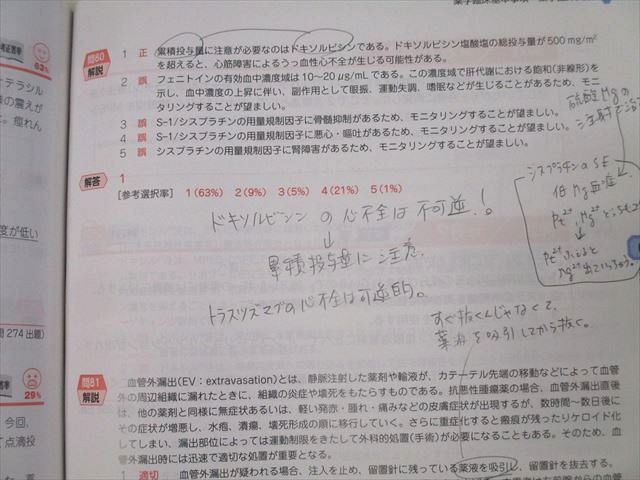 薬学臨床基本事項
問80
解説
1 正 累積投与量に注意が必要なのはドキソルビシンである。ドキソルビシン塩酸塩の総投与量が500 mg/m²
を超えると、心筋障害によるうっ血性心不全が生じる可能性がある。
2 誤 フェニトインの有効血中濃度域は10〜20 μg/mLである。この濃度域で肝代謝における飽和(非線形)を
示し、血中濃度の上昇に伴い、副作用として眼振、運動失調、嗜眠などが生じることがあるため、モニ
タリングすることが望ましい。
3 誤 S-1/シスプラチンの用量規制因子に骨髄抑制があるため、モニタリングすることが望ましい。
4 誤 S-1/シスプラチンの用量規制因子に悪心・嘔吐があるため、モニタリングすることが望ましい。
5 誤 シスプラチンの用量規制因子に腎障害があるため、モニタリングすることが望ましい。
解答 1
[参考選択率] 1(63%) 2(9%) 3(5%) 4(21%) 5(1%)
ドキソルビシンの心不全は不可逆!
↓
累積投与量に注意.
トラスツズマブの心不全は可逆的。
硫酸Mgの
シスプラチンのSE
低Mg血症
すぐ抜くんじゃなくて、
薬液を吸引してから抜く。
問81
解説
血管外漏出(EV：extravasation)とは、静脈注射した薬剤や輸液が、カテーテル先端の移動などによって血管
外の周辺組織に漏れたときに、組織の炎症や壊死をもたらすものである。抗悪性腫瘍薬の場合、血管外漏出直後
は、他の薬剤と同様に無症状あるいは、軽い発赤・腫れ・痛みなどの皮膚症状が出現するが、数時間〜数日後に
その症状が増悪し、水疱、潰瘍、壊死形成の順に移行していく。さらに重症化すると瘢痕が残ったりケロイド化
してしまい、漏出部位によっては運動制限をきたして外科的処置(手術)が必要になることもある。そのため、血
管外漏出時には迅速で適切な処置が重要となる。
1 適切 血管外漏出が疑われる場合、注入を止め、留置針に残っている薬液を吸引し、留置針を抜去する。
63%
テラシル
の震えが
痙れん
度が低い
問 274 出題)
29%
今回、
て点滴投